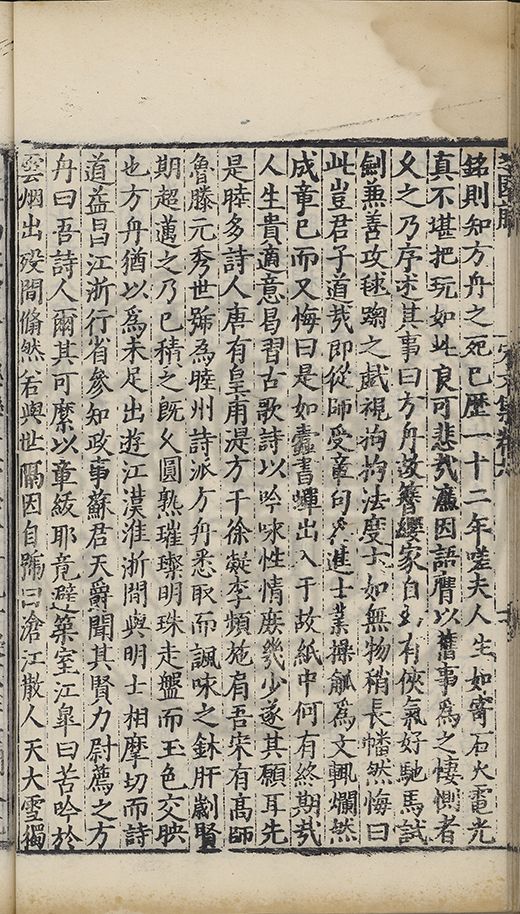 銘則知方舟之死已歷一十二年嗟夫人生如寄石火電光
真不堪把玩如此良可悲哉廌因語膺以舊事爲之悽惻者
久之乃序述其事曰方舟故簪纓家自幼有俠氣好馳馬試
劍兼善攻毬踘之戲視拘拘法度士如無物稍長幡然悔曰
此豈君子道哉即從師受章句爲進士業操觚爲文輒爛然
成章已而又悔曰是如蠹書蟫出入于故紙中何有終期哉
人生貴適意曷習古歌詩以吟咏性情庶幾少遂其願耳先
是睦多詩人唐有皇甫湜方干徐凝李頻施肩吾宋有高師
魯滕元秀世號爲睦州詩派方舟悉取而諷味之鉥肝劌腎
期超邁之乃已積之既久圓熟璀璨明珠走盤而玉色交映
也方舟猶以爲未足出遊江漢淮浙間與明士相摩切而詩
道益昌江浙行省參知政事蘇君天爵聞其賢力尉薦之方
舟曰吾詩人爾其可縻以章紱耶竟避築室江皐日苦吟於
雲烟出沒間翛然若與世隔因自號曰滄江散人天大雪獨